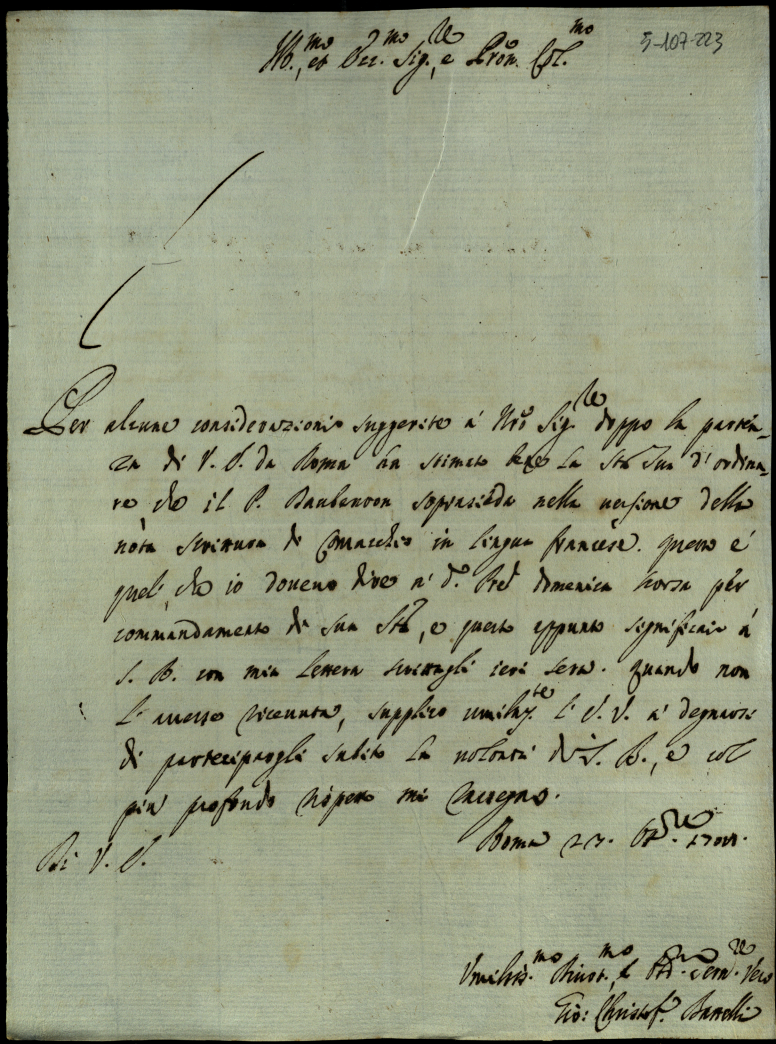 5-107-223
Ill.mo, et Ecc.mo Sig.re, e Pron. Col.mo
Per alcune considerazioni suggerite à Nrō Sig.re doppo la parten-
za di V. E. da Roma ha stimato bene la Stà Sua d'ordina-
re che il P. soprasieda nella versione della
nota scrittura di Comacchio in lingua francese. questo è
quel, che io doveva dire à dº. Pred domenica scorsa per
commandamento di Sua Stà, e questo appunto significai à
S. B. con mia lettera scrittagli ieri sera. quando non
l'avesse ricevuta, supplico umilm.te l'E. V. à degnarsi
di partecipargli subito la volontà di S. B., e col
più profondo rispetto mi rassegno.
Roma 27. Ott.re
Di V. E.
Umiliss.mo Divot.mo, e Obb. Serv.re Vero
Gio: Christof.º Battelli